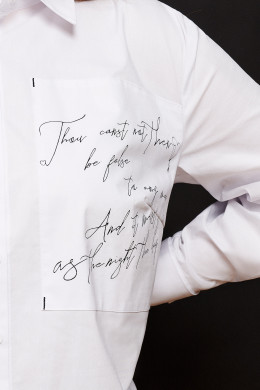 Thou canst not then
be false
to any
And it
as the night the